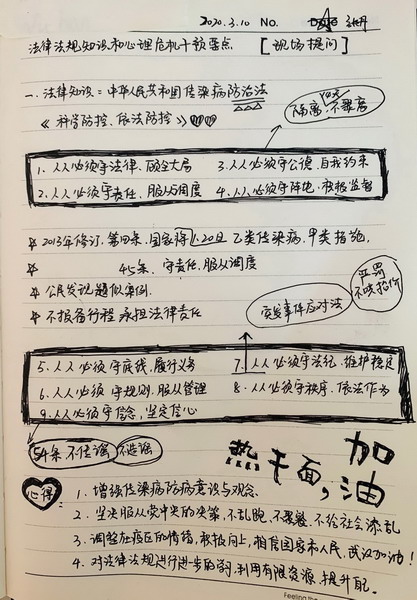 2020.3.10 NO.
法律法规知识和心理危机干预要点 [现场提问]
一.法律知识：中华人民共和国传染病防治法
《科学防控、依法防控》
隔离,不聚离
1、人人必须守法律、顾全大局 3、人人必须守公德、自我约束
2、人人必须守责任、服从调度 4、人人必须守阵地、积极监督
2013年修订.第四条,国家将1.20日乙类传染病,甲类措施。
45条、守责任、服从调度
公民发现疑似案例.
不报备行程 承担法律责任
突发事件应对法
5、人人必须守底线,履行义务 7、人人必须守法纪、维护稳定
6、人人必须守规则、服从管理 8、人人必须守秩序、依法作为
9、人人必须守信念,坚定信心
54条 不信谣 不造谣
热干面,加油
心得
1、增强传染病防病意识与观念.
2、坚决服从党中央的决策,不乱跑,不聚餐,不给社会添乱
3、调整在疫区的情绪,积极向上,相信国家和人民,武汉加油!
4、对法律法规进行进一步的学习,利用有限资源,提升自己.
Feeling the